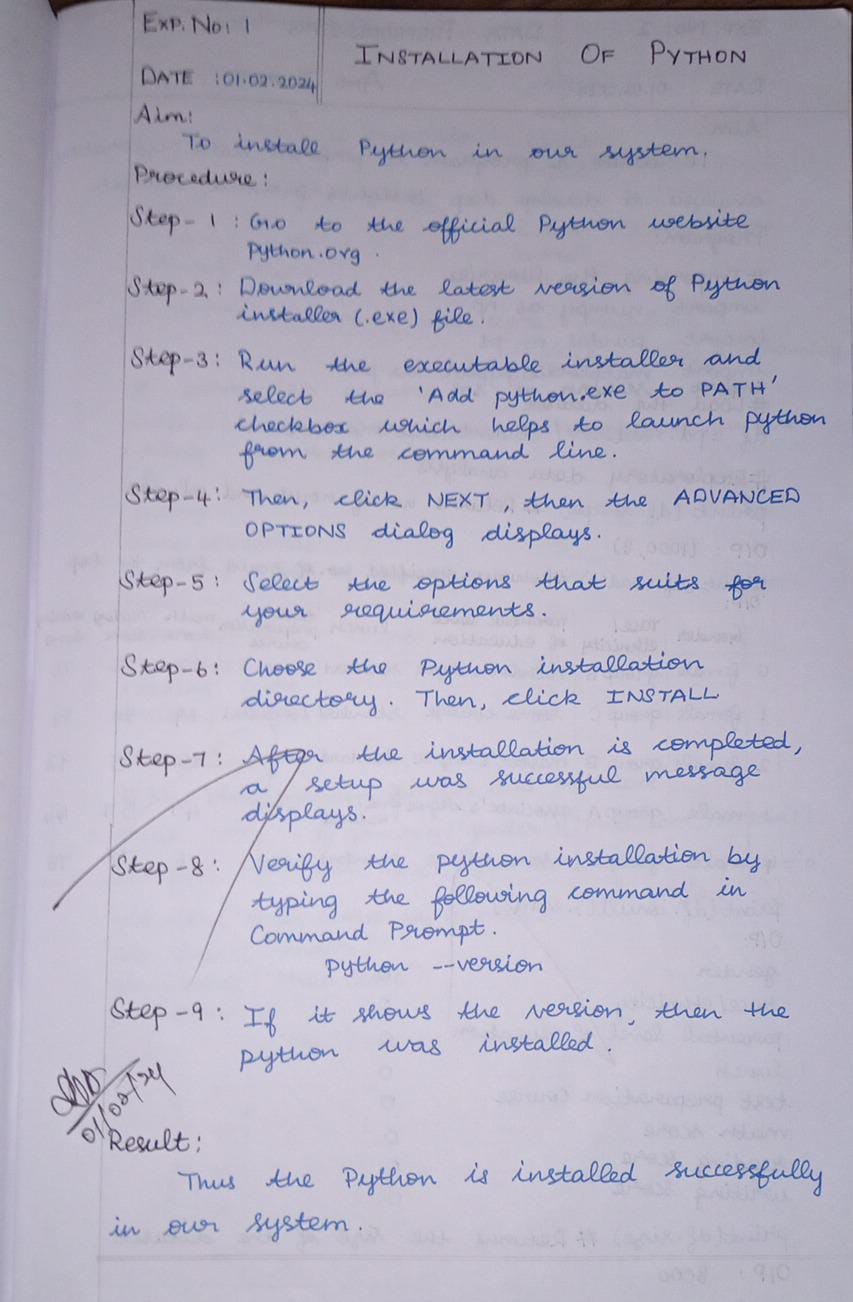 EXP. No: 1
INSTALLATION OF PYTHON
DATE : 01.02.2024
Aim:
To install Python in our system.
Procedure:
Step- 1 : Go to the official Python website
python.org.
Step-2 : Download the latest version of Python
installer (.exe) file.
Step-3 : Run the executable installer and
select the 'Add python.exe to PATH'
checkbox which helps to launch python
from the command line.
Step-4 : Then, click NEXT, then the ADVANCED
OPTIONS dialog displays.
Step-5 : Select the options that suits for
your requirements.
Step-6 : Choose the Python installation
directory. Then, click INSTALL
Step-7 : After the installation is completed,
a setup was successful message
displays.
Step-8 : Verify the python installation by
typing the following command in
Command Prompt.
python --version
Step-9 : If it shows the version, then the
python was installed.
01/02/24
Result:
Thus the Python is installed successfully
in our system.